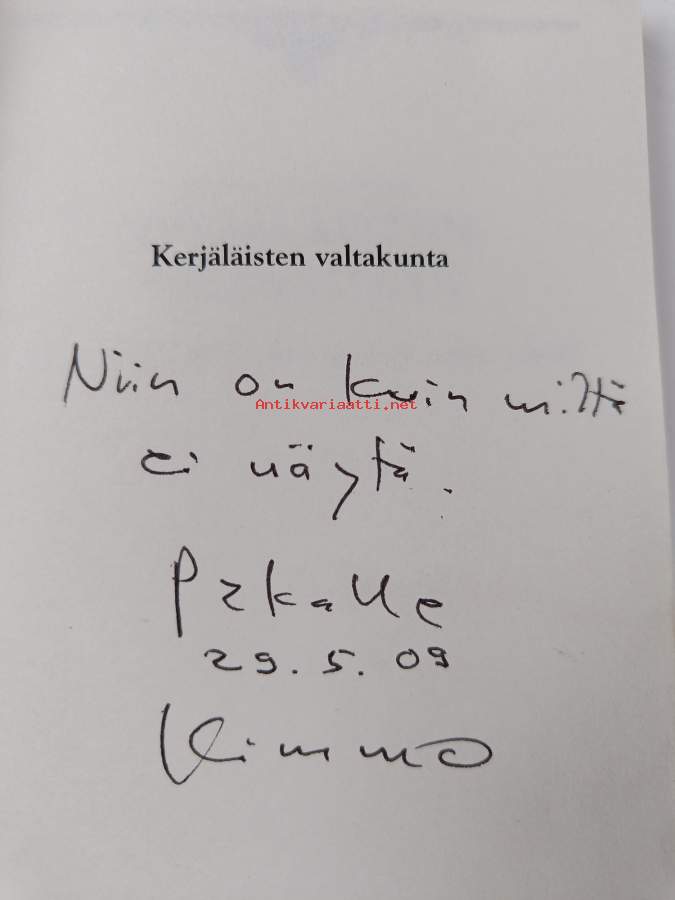 Kerjäläisten valtakunta
Niin on kuin miltä
Antikvariaatti.net
ei näytä.
Pekalle
29.5.09
Kimmo